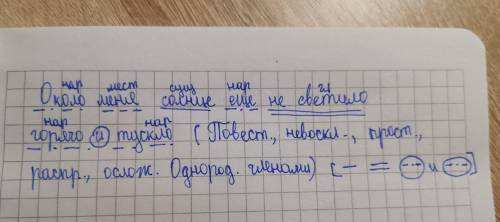 нар мест сущ нар гл
Около меня солнце еще не светило
нар нар
горяго и тускло (Повест., невоскл-., прост.,
распр., ослож. Однород. членами) [— = и ]